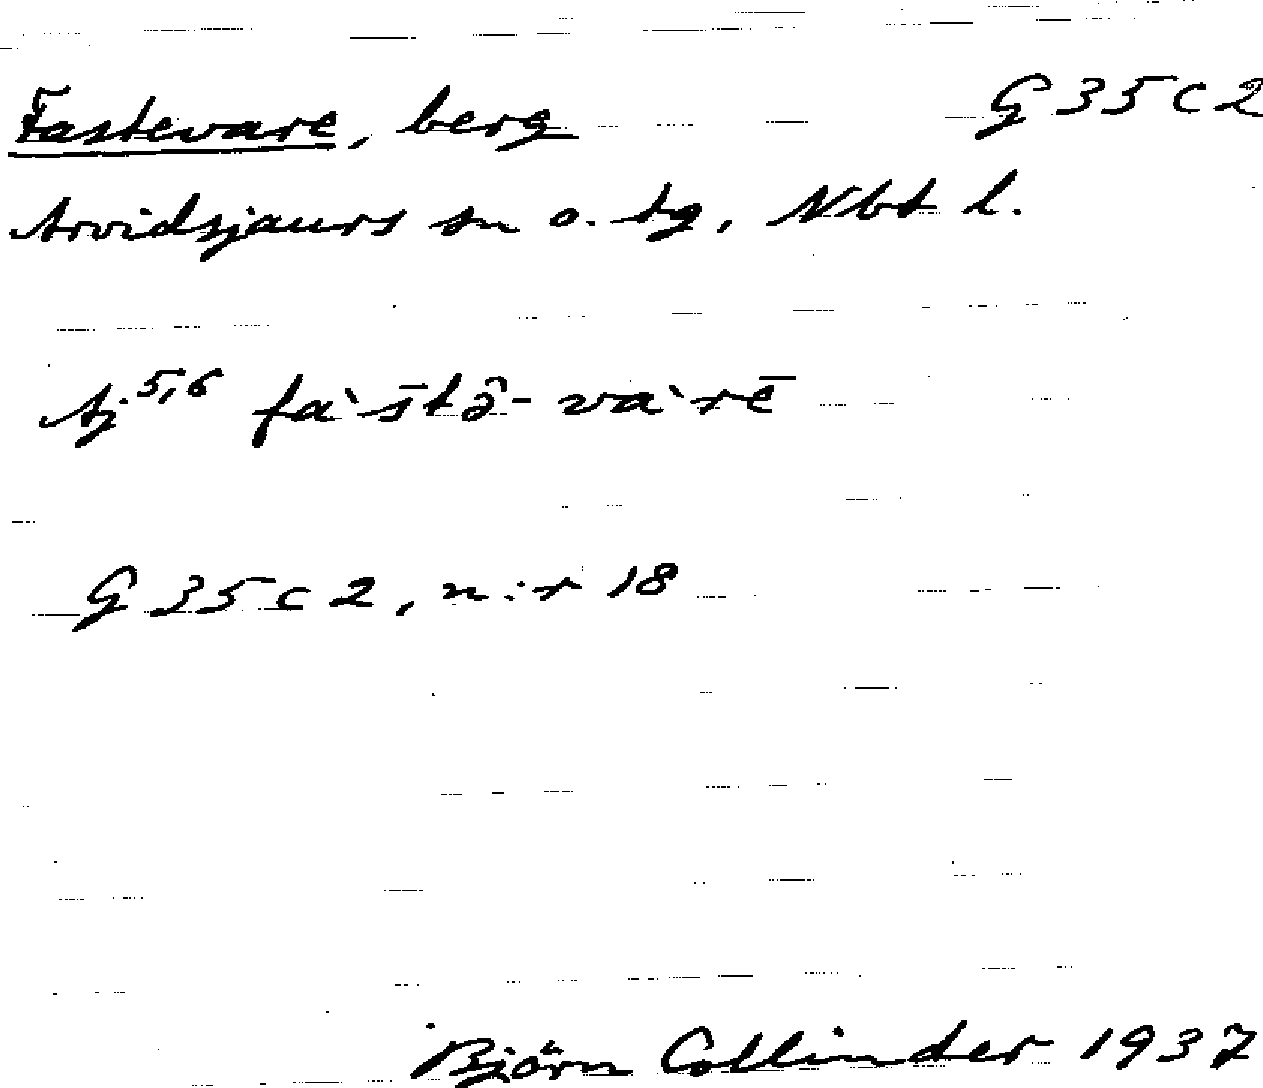 Fastevare, berg G 35 c 2
Arvidsjaurs sn o. tg, Nbt l.
Aj 5,6 fàs̄tə̑-vàrē
G 35 c 2, n:r 18
Björn Collinder 1937